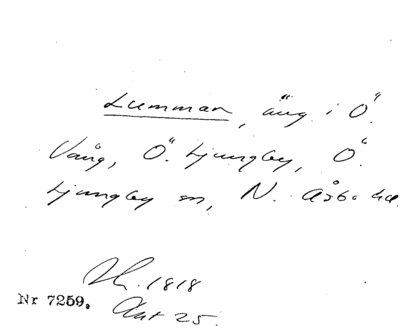 Lumman, äng i Ö.
Vång, Ö. Ljungby, Ö.
Ljungby sn, N. Åsbo hd.
Sk. 1818
Nr 7259. Akt 25.